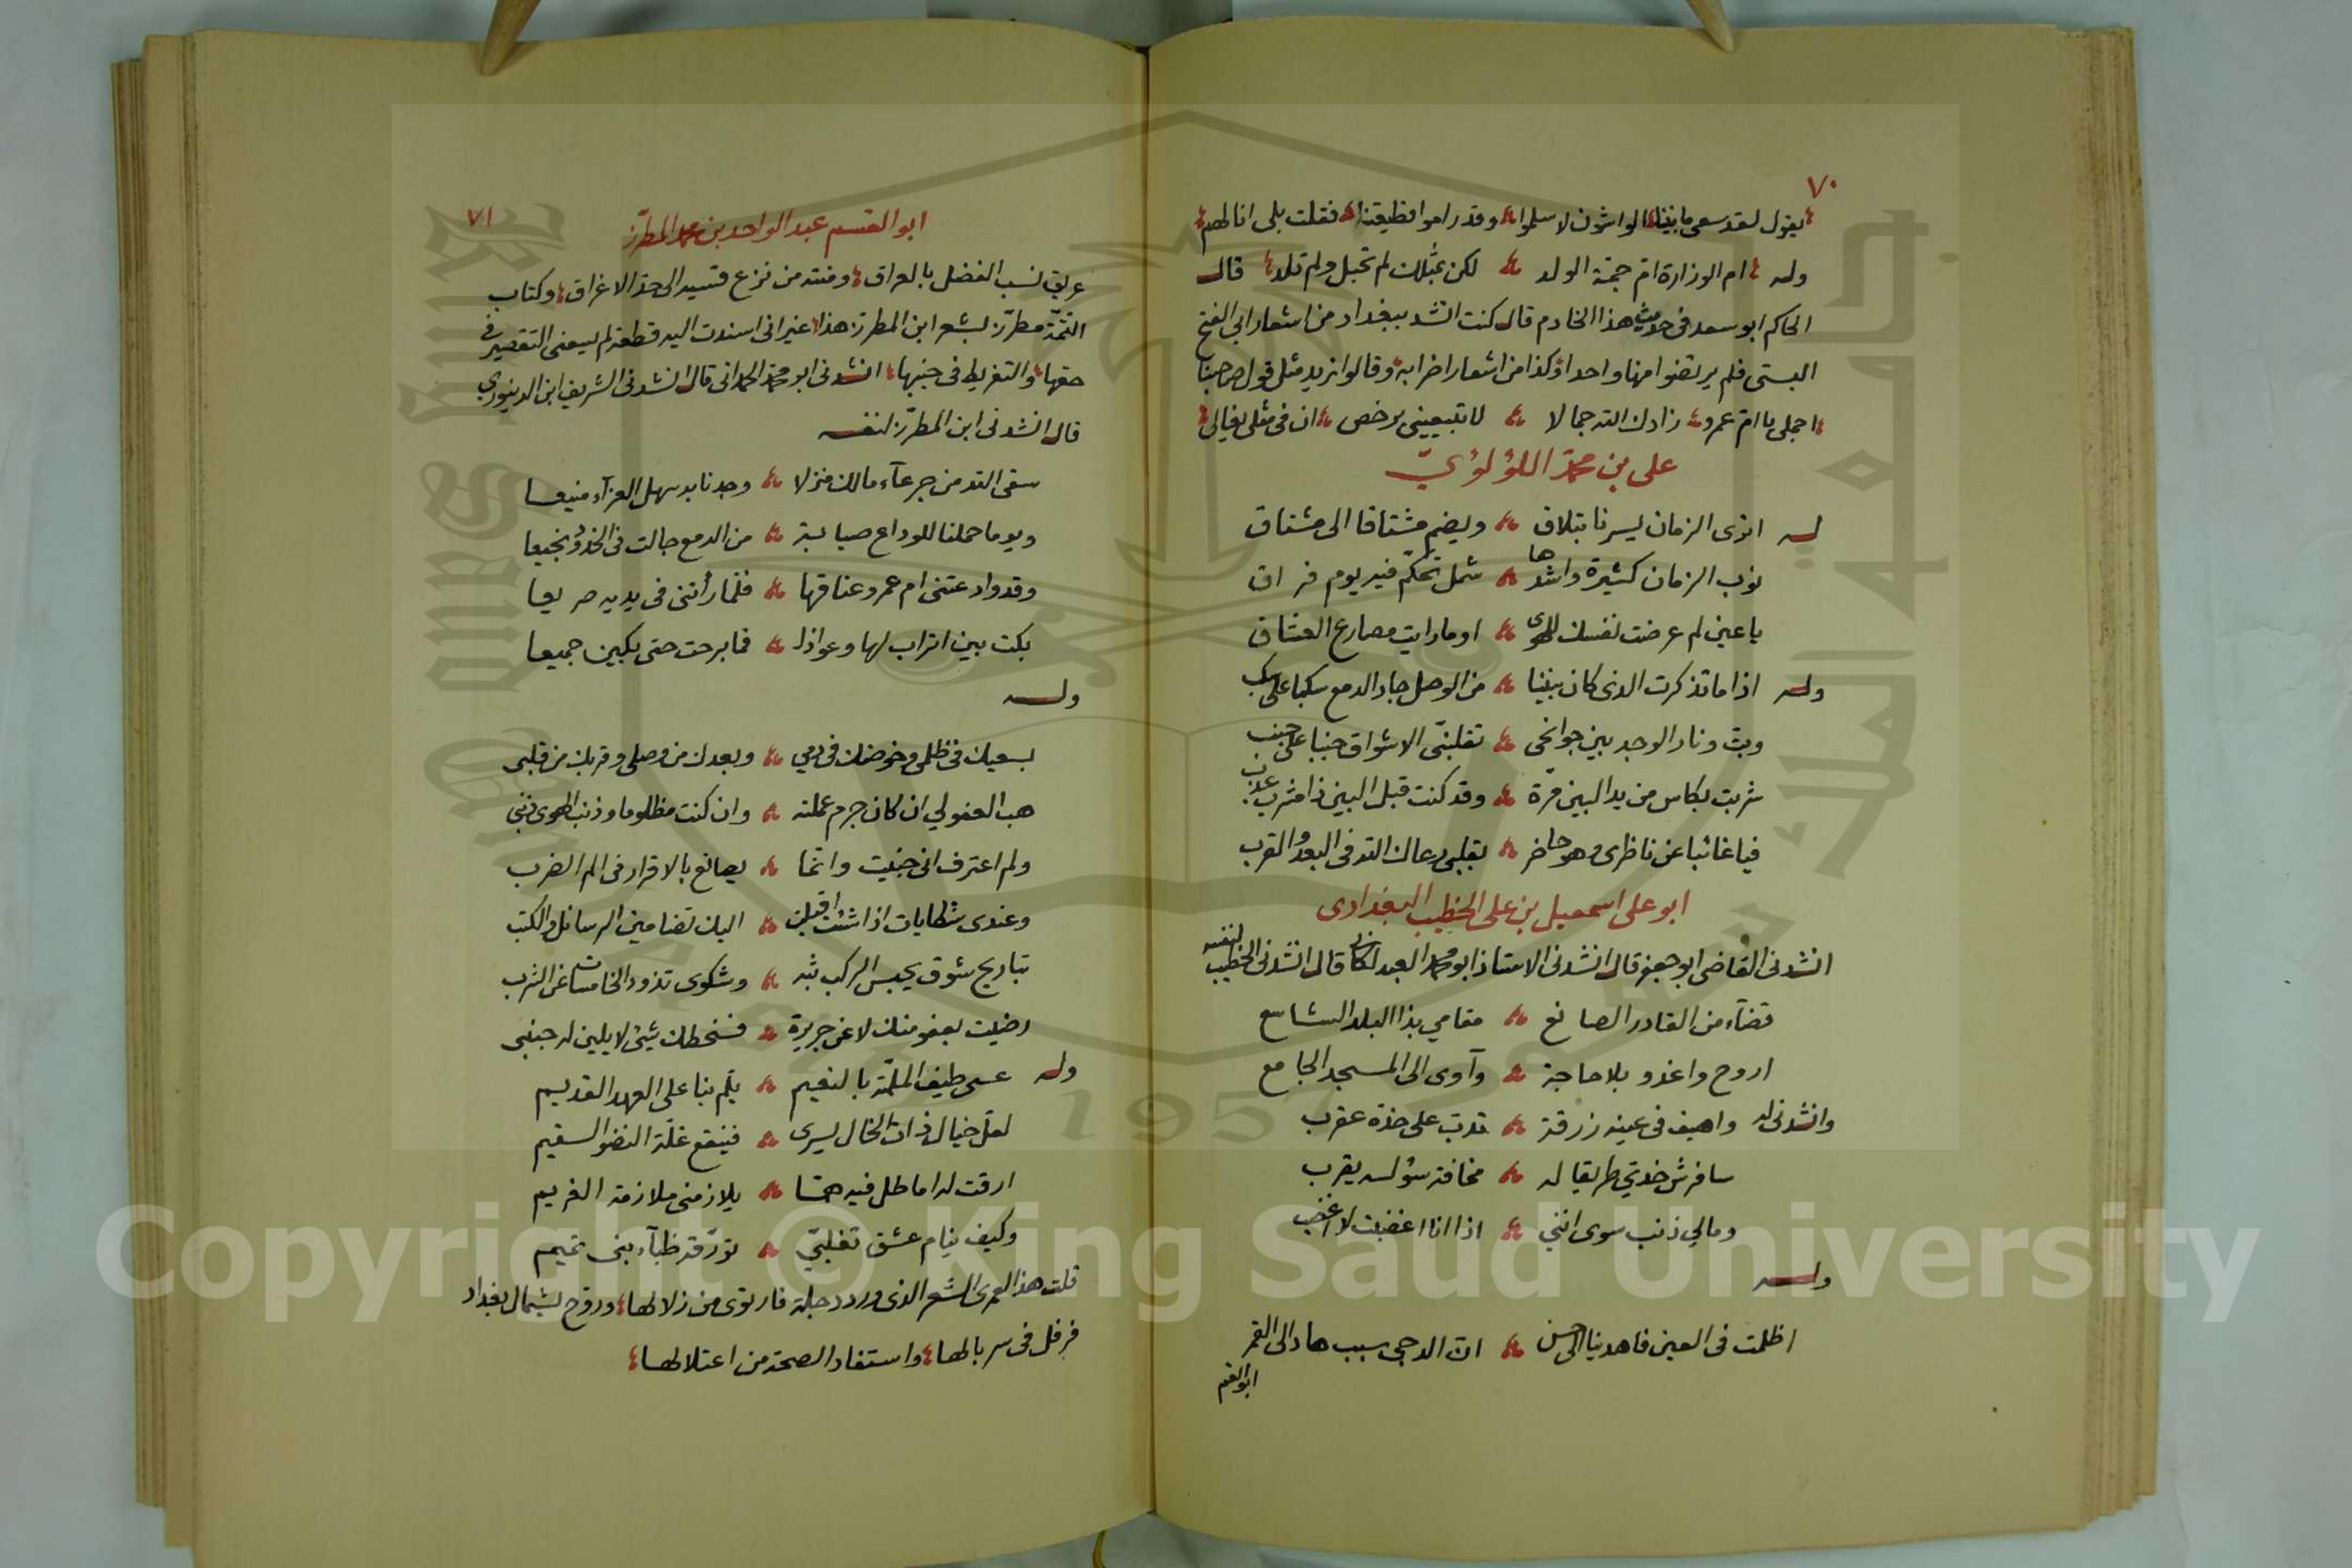 ٧٠
يقول لقد سعى ما بيننا الواشون لا سلموا وقد راموا قطيعتنا فقلت بلى انا لهم
وله ام الوزارة ام جمة الولد لكن بمثلك لم تحبل ولم تلد قال
الحاكم ابو سعد فى حديث هذا الخادم قال كنت انشد ببغداد من اشعار ابى الفتح
البستى فلم يرتضوا منها واحدا وكذا من اشعار اضرابه وقالوا نريد مثل قول صاحبنا
اجملى يا ام عمرو زادك الله جمالا لا تبيعينى برخص ان فى مثلى يغالى
على بن محمد اللؤلؤيّ
له اترى الزمان يسرنا بتلاق ويضم مشتاقا الى مشتاق
نوب الزمان كثيرة واشدها شمل تحكّم فيه يوم فراق
يا عين لم عرضت نفسك للهوى اوما رايت مصارع العشاق
وله اذا ما تذكرت الذى كان بيننا من الوصل جاد الدمع سكبا على سكب
وبت ونار الوجد بين جوانحى تقلبنى الاشواق جنبا على جنب
شربت بكاس من يد البين مرّة وقد كنت قبل البين ذا مشرب عذب
فيا غائبا عن ناظرى وهو حاضر بقلبى رعاك الله فى البعد والقرب
ابو على اسمعيل بن على الخطيب البغدادى
انشدنى القاضى ابو جعفر قال انشدنى الاستاذ ابو محمد العبدلكانى قال انشدنى الخطيب لنفسه
قضآء من القادر الصانع مقامي بذا البلد الشاسع
اروح واغدو بلا حاجة وآوى الى المسجد الجامع
وانشدنى له واهيف فى عينه زرقة تدبّ على خدّه عقرب
سافرش خديّ طريقا له مخافة سؤله يقرب
ومالي ذنب سوى اننى اذا انا اغضبت لا اغضب
وله
اظلمت فى العين فاهدينا الى حسن انّ الدجى سبب هاد الى القمر
ابو القسم
٧١
ابو القسم عبد الواحد بن محمد المطرّز
عريق نسب الفضل بالعراق ومنته من نزع قسيه الى حدّ الاغراق وكتاب
التتمّة مطرّز بشعر ابن المطرز هذا غير انى اسندت اليه قطعة لم يسعنى التقصير فى
حقها والتفريط فى جنبها انشدنى ابو محمد الحمدانى قال انشدنى الشريف ابن الدينوري
قال انشدنى ابن المطرّز لنفسه
سقى الله من جرعآء مالك منزلا وجدنا به سهل العزآء منيعا
ويوما حملنا للوداع صبابة من الدمع جالت فى الخدود نجيعا
وقد وادعتنى ام عمرو عناقها فلما رأتنى فى يديه صريعا
بكت بين اتراب لها وعواذل فما برحت حتى بكين جميعا
وله
بسعيك فى ظلمى وخوضك فى دمي وبعدك من وصلى وقربك من قلبى
هب العفو لي ان كان جرم عملته وان كنت مظلوما وذنب الهوى ذنبى
ولم اعترف انى جنيت وانّما يصانع بالاقرار فى الم الضرب
وعندى شكايات اذا شئت اقبلت اليك تضامين الرسائل والكتب
تباريج شوق يحبس الركب بثه وشكوى تذود الخامسات عن الشرب
رضيت بعفو منك لا عن جريرة فسخطك شئ لا يلين له جنبى
وله عسى طيف الملمّة بالنعيم يلم بنا على العهد القديم
لعل خيال ذات الخال يسرى فينقع غلّة النضو السقيم
ارقت له اماطل فيه همّا يلازمنى ملازمة الغريم
وكيف ينام عشق تغلبىّ تؤرّقه ظبآء بنى تميم
قلت هذا لعمرى الشعر الذى ورد دجلة فارتوى من زلالها وروّح بشمال بغداد
فرفل فى سربالها واستفاد الصحة من اعتلالها
Copyright © King Saud University
1957